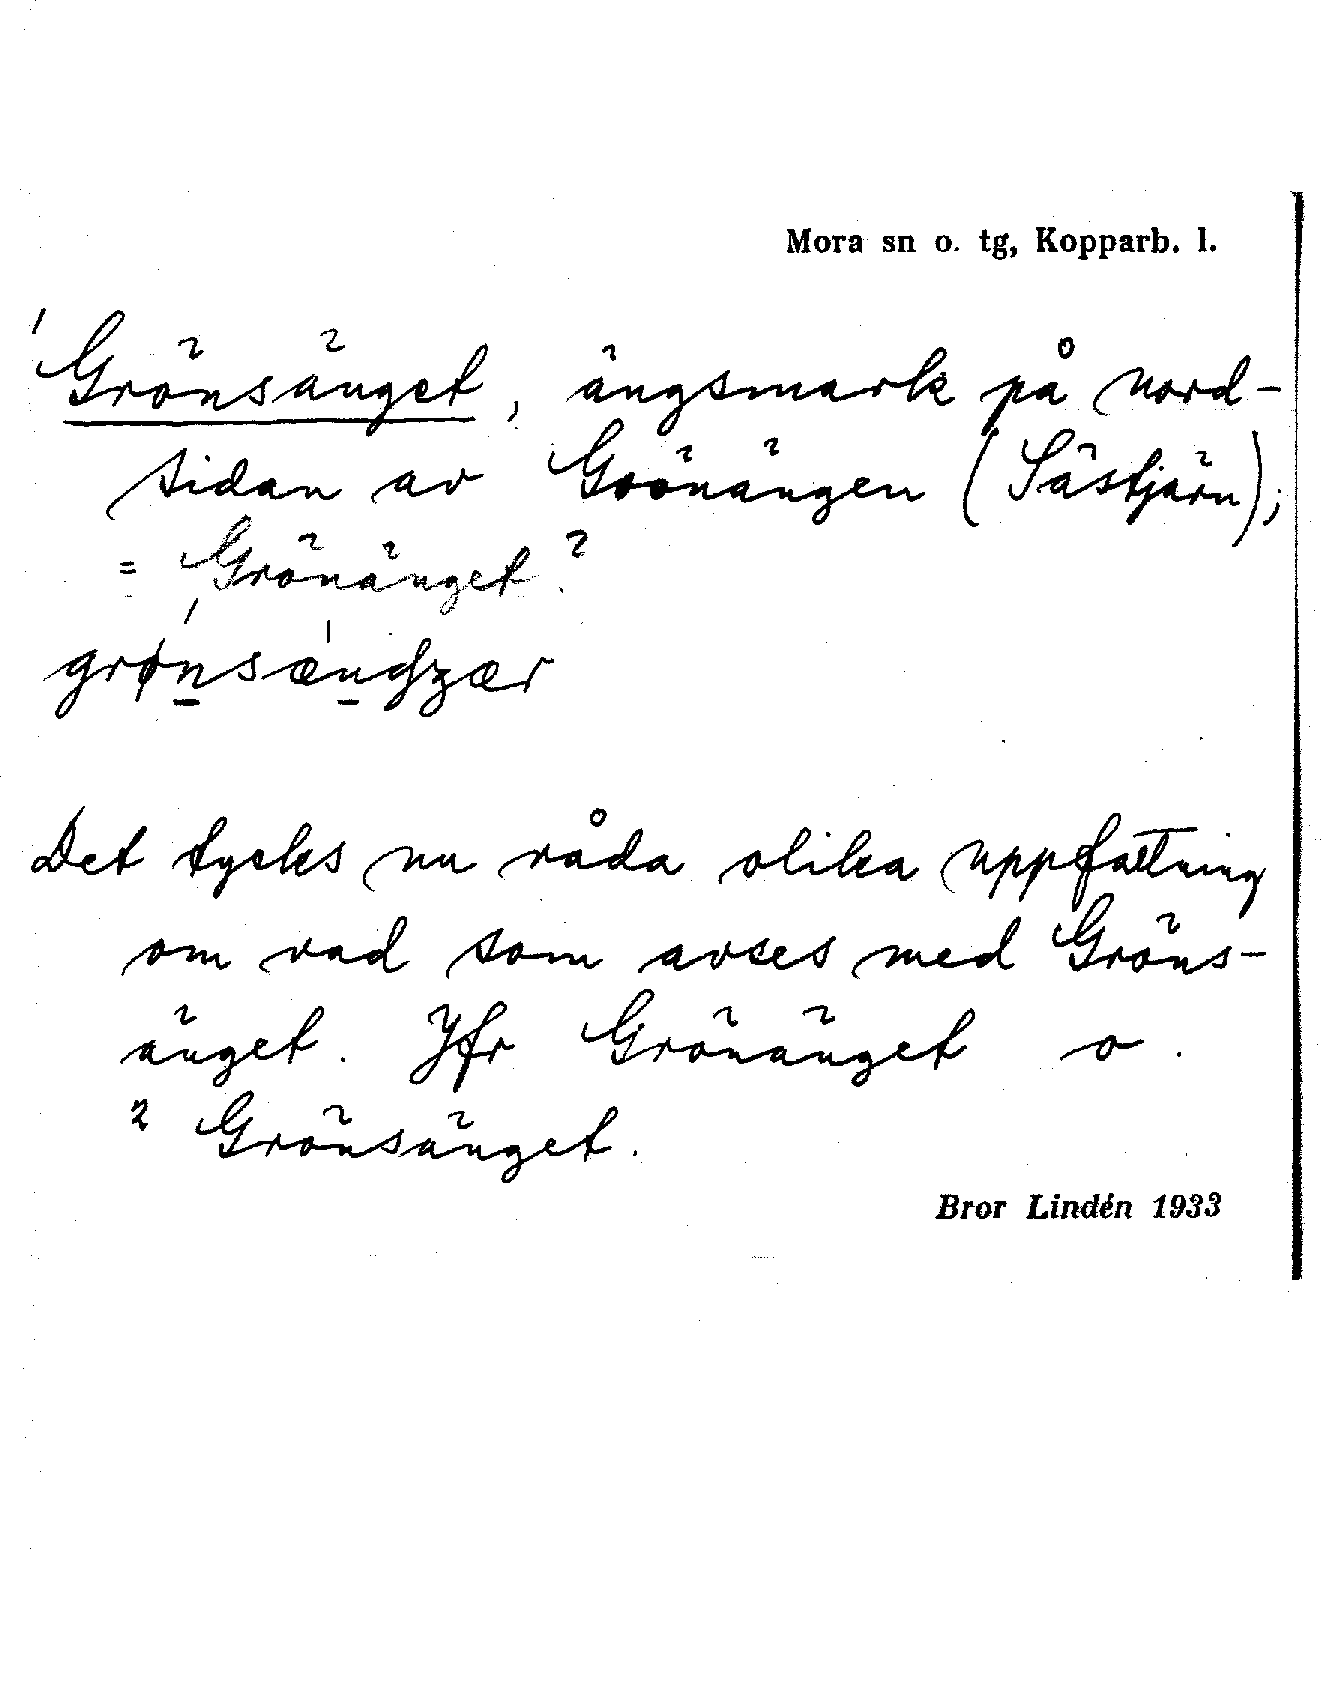 Mora sn o. tg, Kopparb. l.
¹Grönsänget, ängsmark på nord-
sidan av Grönängen (Sästjärn);
= Grönänget?
Det tycks nu råda olika uppfattning
om vad som avses med Gröns-
änget. Jfr Grönänget o.
² Grönsänget.
Bror Lindén 1933